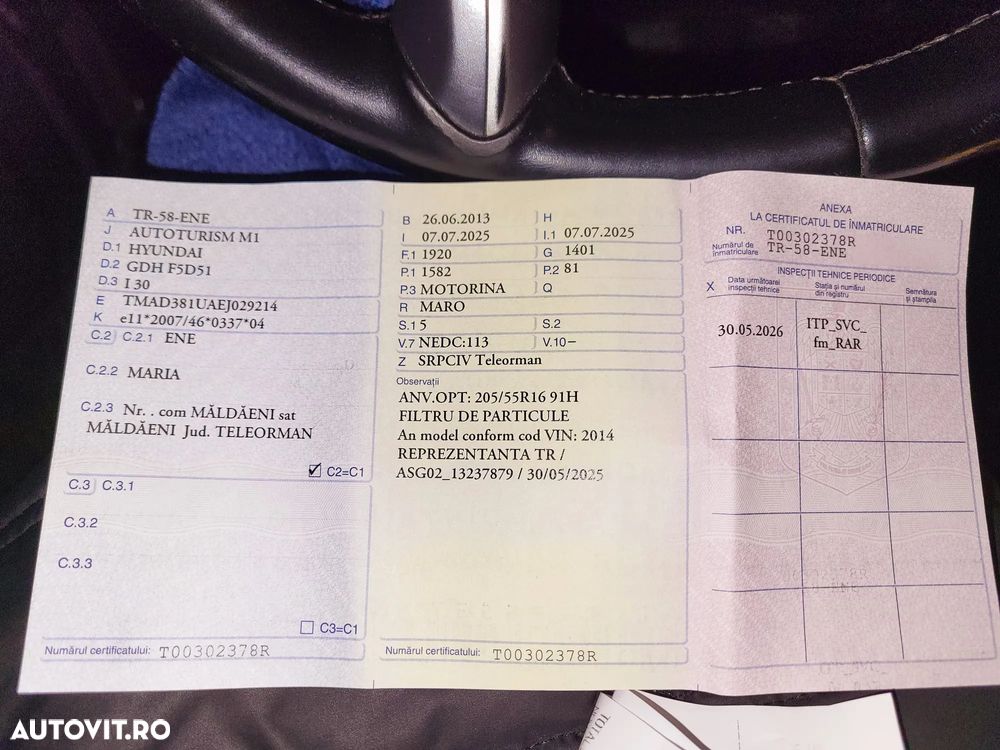 A TR-58-ENE
J AUTOTURISM M1
D.1 HYUNDAI
D.2 GDH F5D51
D.3 I 30
E TMAD381UAEJ029214
K e11*2007/46*0337*04
C.2 C.2.1 ENE
C.2.2 MARIA
C.2.3 Nr. . com MĂLDĂENI sat
MĂLDĂENI Jud. TELEORMAN
C2=C1
C.3 C.3.1
C.3.2
C.3.3
C3=C1
Numărul certificatului: T00302378R
B 26.06.2013 H
I 07.07.2025 I.1 07.07.2025
F.1 1920 G 1401
P.1 1582 P.2 81
P.3 MOTORINA Q
R MARO
S.1 5 S.2
V.7 NEDC:113 V.10-
Z SRPCIV Teleorman
Observații
ANV.OPT: 205/55R16 91H
FILTRU DE PARTICULE
An model conform cod VIN: 2014
REPREZENTANTA TR /
ASG02_13237879 / 30/05/2025
Numărul certificatului: T00302378R
ANEXA
LA CERTIFICATUL DE ÎNMATRICULARE
NR. T00302378R
Numărul de înmatriculare TR-58-ENE
INSPECȚII TEHNICE PERIODICE
X Data următoarei inspecții tehnice Stația și numărul din registru Semnătura și ștampila
30.05.2026 ITP_SVC_
fm_RAR
TOTAL
AUTOVIT.RO